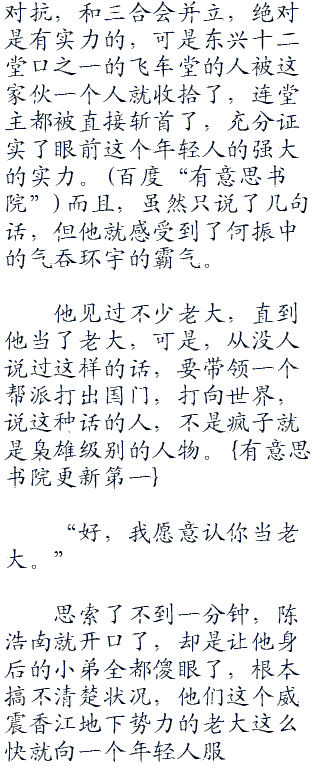 对抗，和三合会并立，绝对
是有实力的，可是东兴十二
堂口之一的飞车堂的人被这
家伙一个人就收拾了，连堂
主都被直接斩首了，充分证
实了眼前这个年轻人的强大
的实力。(百度“有意思书
院”)而且，虽然只说了几句
话，但他就感受到了何振中
的气吞环宇的霸气。
他见过不少老大，直到
他当了老大，可是，从没人
说过这样的话，要带领一个
帮派打出国门，打向世界，
说这种话的人，不是疯子就
是枭雄级别的人物。{有意思
书院更新第一}
“好，我愿意认你当老
大。”
思索了不到一分钟，陈
浩南就开口了，却是让他身
后的小弟全都傻眼了，根本
搞不清楚状况，他们这个威
震香江地下势力的老大这么
快就向一个年轻人服